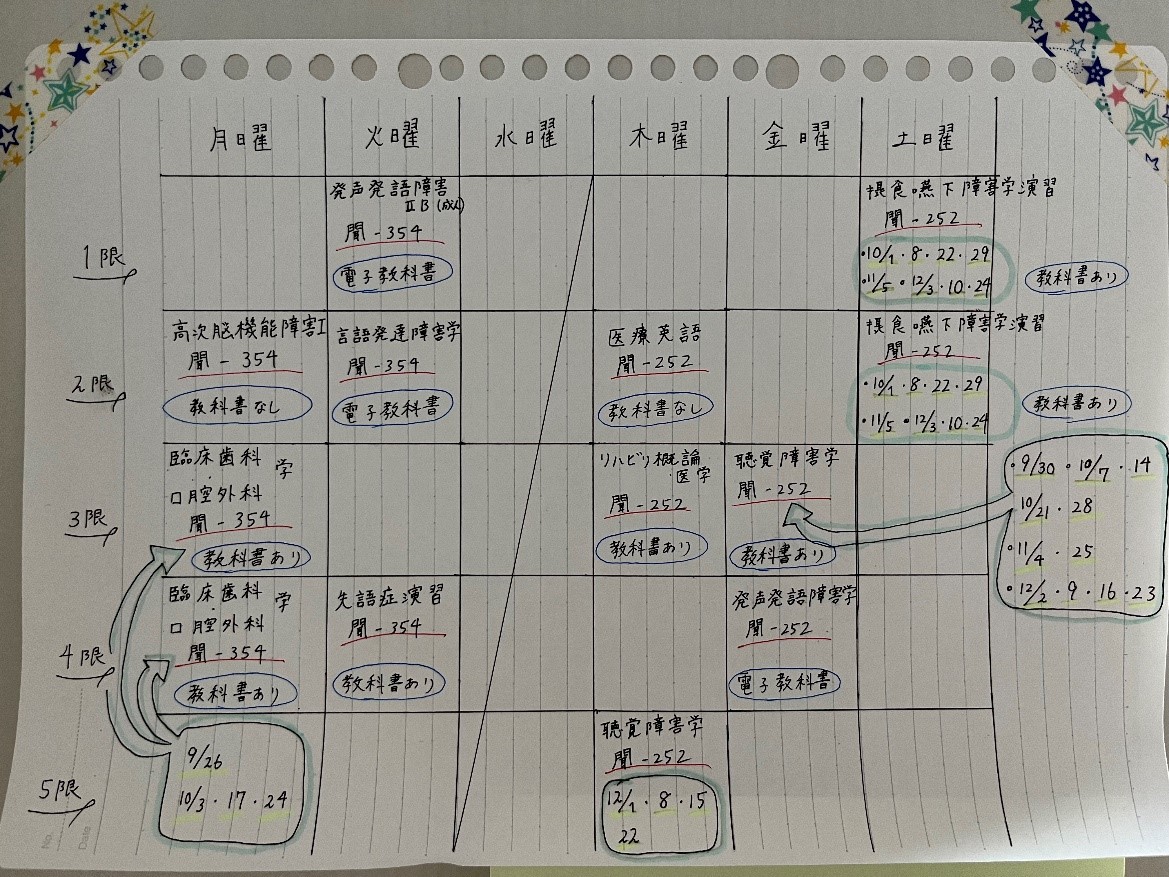 月曜
火曜
水曜
木曜
金曜
土曜
1限
発声発語障害
ⅡB(成人)
聞-354
電子教科書
摂食嚥下障害学演習
聞-252
・10/1・8・22・29
・11/5・12/3・10・24
教科書あり
2限
高次脳機能障害Ⅰ
聞-354
教科書なし
言語発達障害学
聞-354
電子教科書
医療英語
聞-252
教科書なし
摂食嚥下障害学演習
聞-252
・10/1・8・22・29
・11/5・12/3・10・24
教科書あり
3限
臨床歯科学
口腔外科
聞-354
教科書あり
リハビリ概論
医学
聞-252
教科書あり
聴覚障害学
聞-252
教科書あり
・9/30・10/7・14
10/21・28
・11/4・25
・12/2・9・16・23
4限
臨床歯科学
口腔外科
聞-354
教科書あり
失語症演習
聞-354
教科書あり
発声発語障害学
聞-252
電子教科書
5限
9/26
10/3・17・24
聴覚障害学
聞-252
12/1・8・15
22
No.
Date